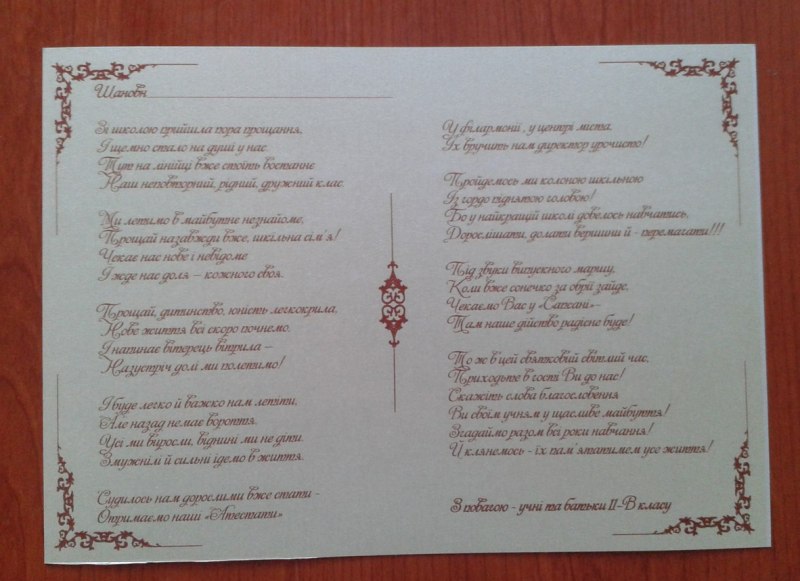 Шановн
Зі школою прийшла пора прощання,
І щемно стало на душі у нас.
Тут на лінійці вже стоїть востаннє
Наш неповторний, рідний, дружний клас.
Ми летимо в майбутнє незнайоме,
Прощай назавжди вже, шкільна сім'я!
Чекає нас нове і невідоме
І жде нас доля – кожного своя.
Прощай, дитинство, юність легкокрила,
Нове життя всі скоро почнемо.
І напинає вітерець вітрила –
Назустріч долі ми полетимо!
І буде легко й важко нам летіти,
Але назад немає вороття.
Усі ми виросли, віднині ми не діти.
Змужнілі й сильні ідемо в життя.
Судилось нам дорослими вже стати -
Отримаємо наші «Атестати»
У філармонії , у центрі міста,
Їх вручить нам директор урочисто!
Пройдемось ми колоною шкільною
Із гордо піднятою головою!
Бо у найкращій школі довелось навчатись,
Дорослішати, долати вершини й - перемагати!!!
Під звуки випускного маршу,
Коли вже сонечко за обрії зайде,
Чекаємо Вас у «Сапсані»–
Там наше дійство радісне буде!
То ж в цей святковий світлий час,
Приходьте в гості Ви до нас!
Скажіть слова благословення
Ви своїм учням у щасливе майбуття!
Згадаймо разом всі роки навчання!
Й клянемось - їх пам'ятатимем усе життя!
З повагою - учні та батьки 11-В класу